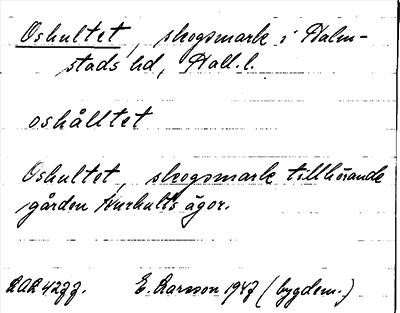 Oshultet, skogsmark i Halm-
stads hd, Hall.l.
oshålltet
Oshultet, skogsmark tillhörande
gården ägor.
E. Larsson 1947 (bygdem.)